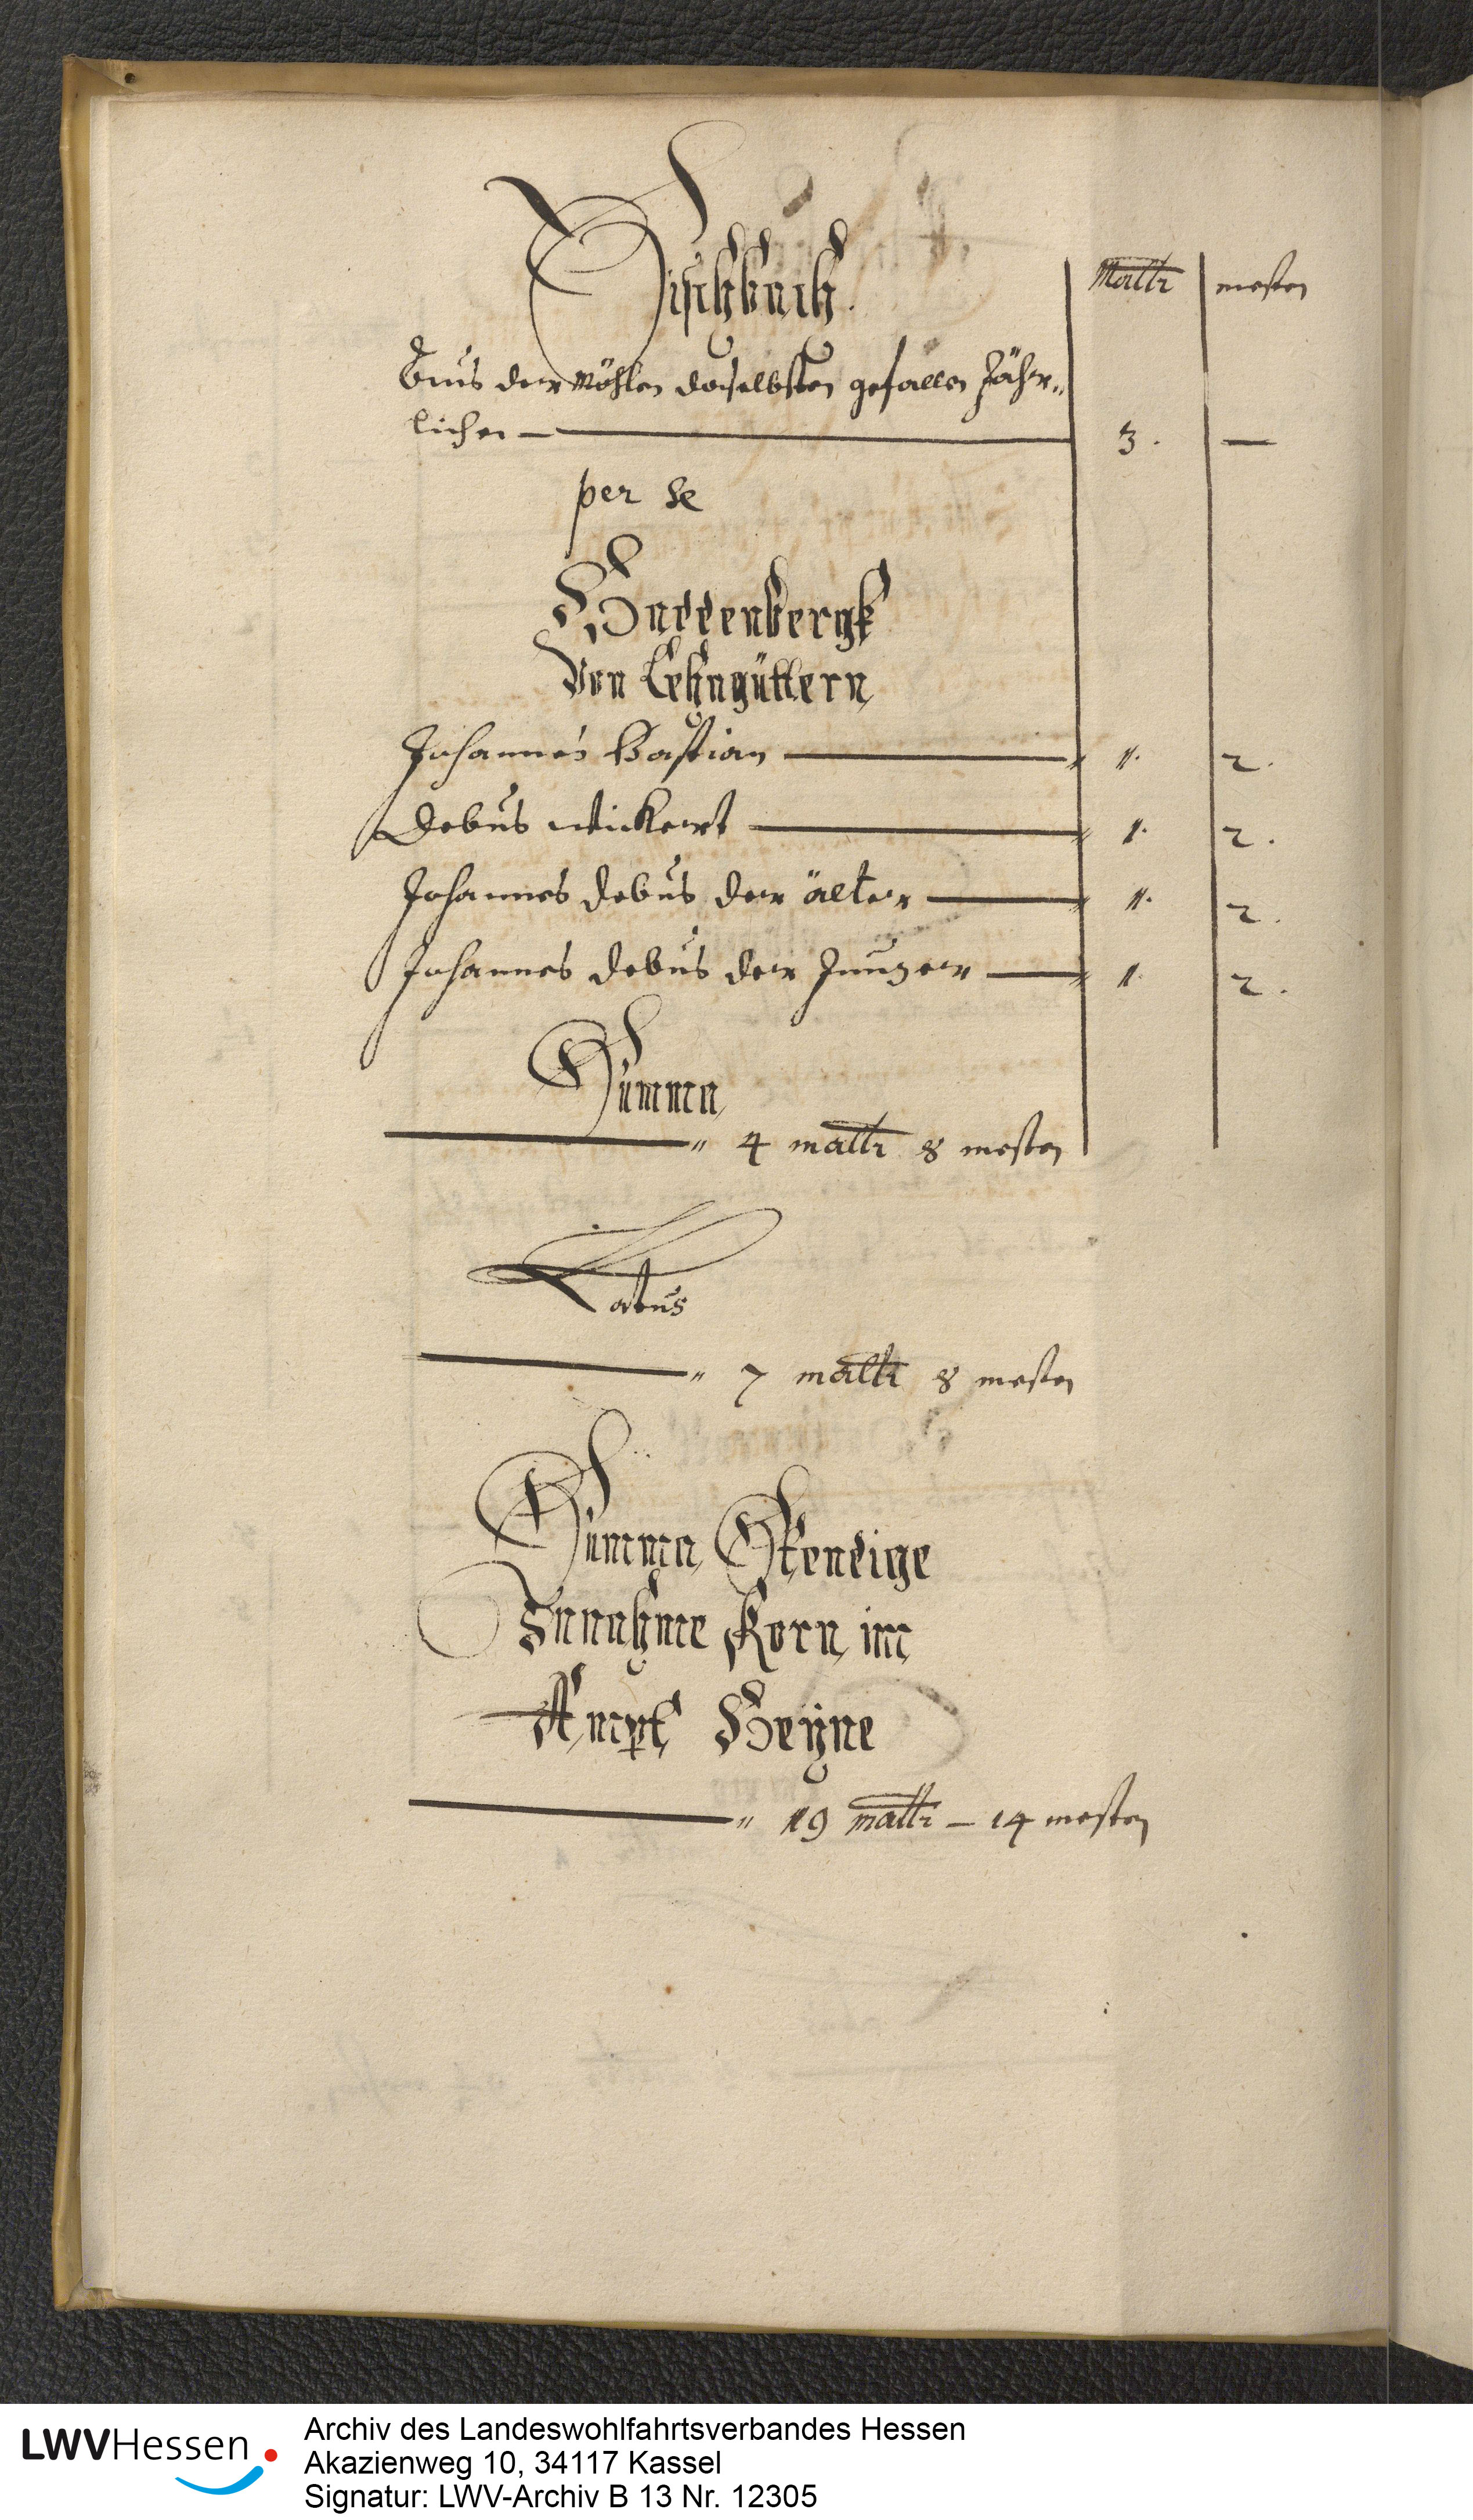 Vischbach.
Maltr mesten
Aus der Möhlen doselbsten gefallen Jähr„
lichen — 3. —
per se
Haddenbergk
Von Lehngüttern
Johannes Bastian — 1. 2.
Debus Wickert — 1. 2.
Johannes Debus der älter — 1. 2.
Johannes Debus der Junger — 1. 2.
Summa
— „ 4 maltr 8 mesten
Latus
— „ 7 maltr 8 mesten
Summa Stendige
Innahme Korn im
Ampt Heyne
— „ 19 maltr – 14 mesten
LWVHessen
Archiv des Landeswohlfahrtsverbandes Hessen
Akazienweg 10, 34117 Kassel
Signatur: LWV-Archiv B 13 Nr. 12305